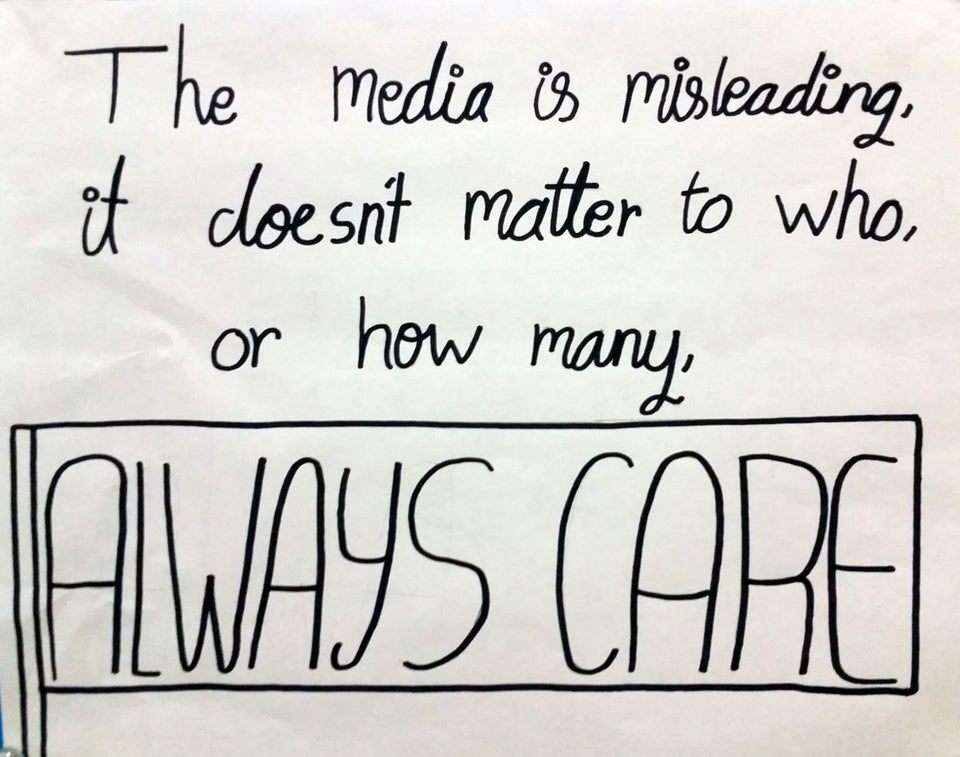 The media is misleading,
it doesn't matter to who,
or how many,
ALWAYS CARE